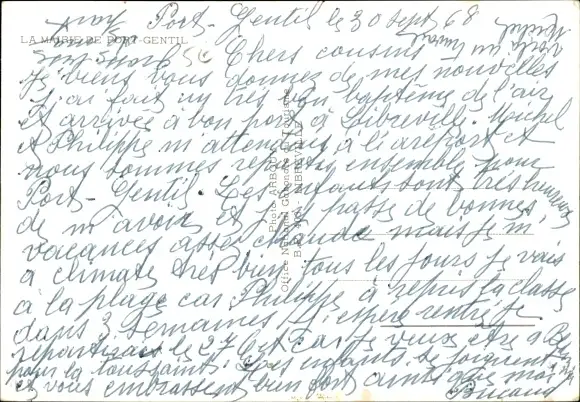 Port-Gentil le 30 sept 68
LA MAIRIE DE PORT-GENTIL
Chers cousins
je viens vous donner de mes nouvelles
j'ai fait un très bon baptême de l'air
et arrivée à bon port à Libreville. Michel
et Philippe m'attendais à l'aréoport et
nous sommes repartis ensemble pour
Port-Gentil Les enfants sont très heureux
de m'avoir et je passe de bonnes
vacances asser chaude mais je m'
a climate très bien tous les jours je vais
a la plage car Philippe à repris la classe
dans 3 semaines j'espère rentré je
repartirais le 27 Oct car je veux etre a
pour la toussaint. Les enfants se joignent
et vous embrassent bien fort ainsi que moi
Photo ARBOUL
Office National Gabonais du Tourisme
LIBREVILLE